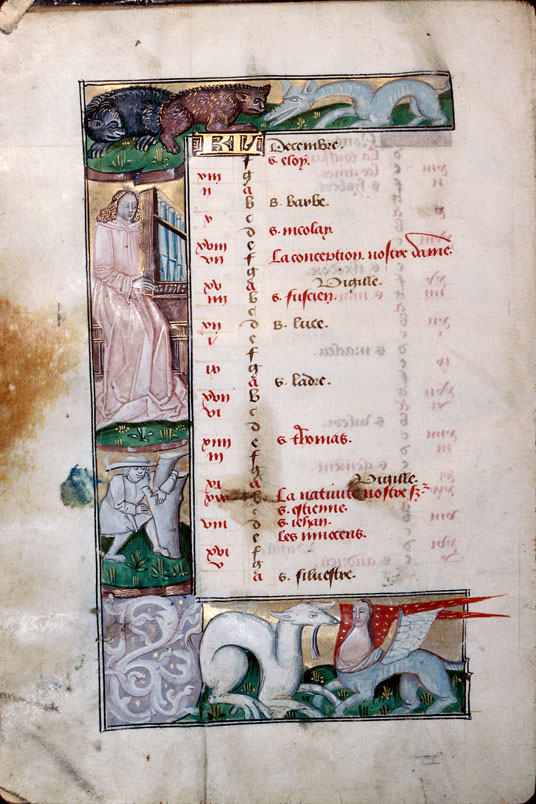 KL Decembre.
f s. eloy.
xiii g
ii a
b s. barbe.
x c
d s. nicolay.
xviii e
vii f La conception nostre dame.
g
xv a Vigille.
iiii b s. fuscien.
c
xii d s. luce.
i e
f
ix g
a s. ladre.
xvii b
vi c
d
xiiii e s. thomas.
iii f
g
xi a Vigille.
b La nativite nostre
c s. estienne.
viii d s. iehan.
e Les innocens.
xvi f
g
a s. silvestre.